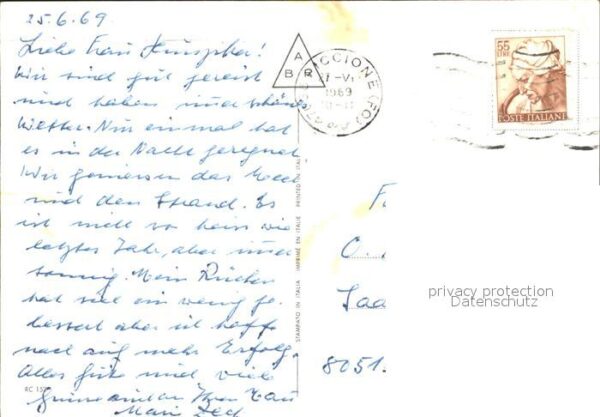 25.6.69
Liebe Frau
Wir sind gut gereist
und haben immer schönes
Wetter. Nur einmal hat
es in der Nacht geregnet
Wir geniessen das Meer
und den Strand. Es
ist nicht so heiss wie
letztes Jahr, aber immer
sonnig. Mein Rücken
hat sich ein wenig ge-
bessert aber ich hoffe
noch auf mehr Erfolg.
Alles Gute und viele
Grüsse
A
B R
RICCIONE (FO)
1969
55
LIRE
POSTE ITALIANE
STAMPATO IN ITALIA IMPRIMÉ EN ITALIE PRINTED IN ITALY
F
O.
Saa
8051.
privacy protection
Datenschutz